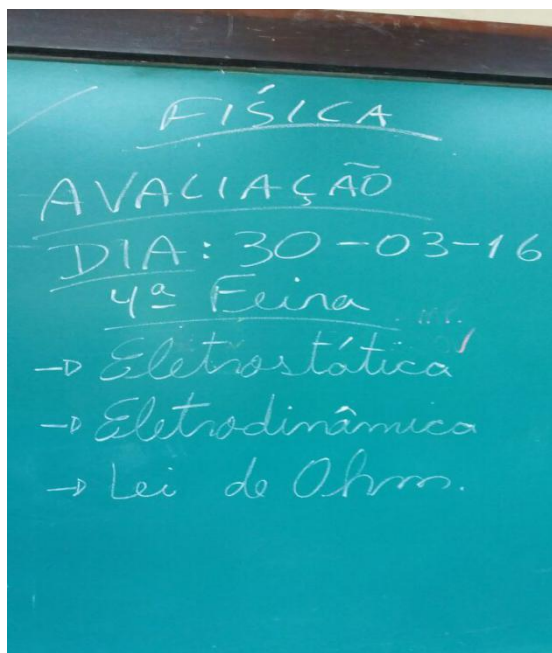 FÍSICA
AVALIAÇÃO
DIA: 30-03-16
4ª Feira
→ Eletrostática
→ Eletrodinâmica
→ Lei de Ohm.